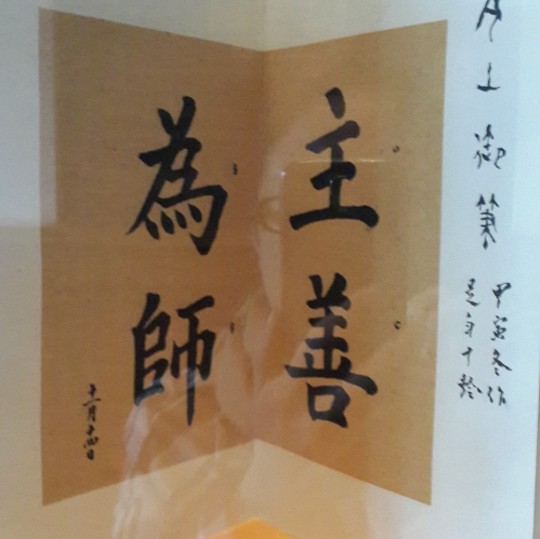 上御筆
甲寅冬作
是年十齡
主善
為師
十一月十四日